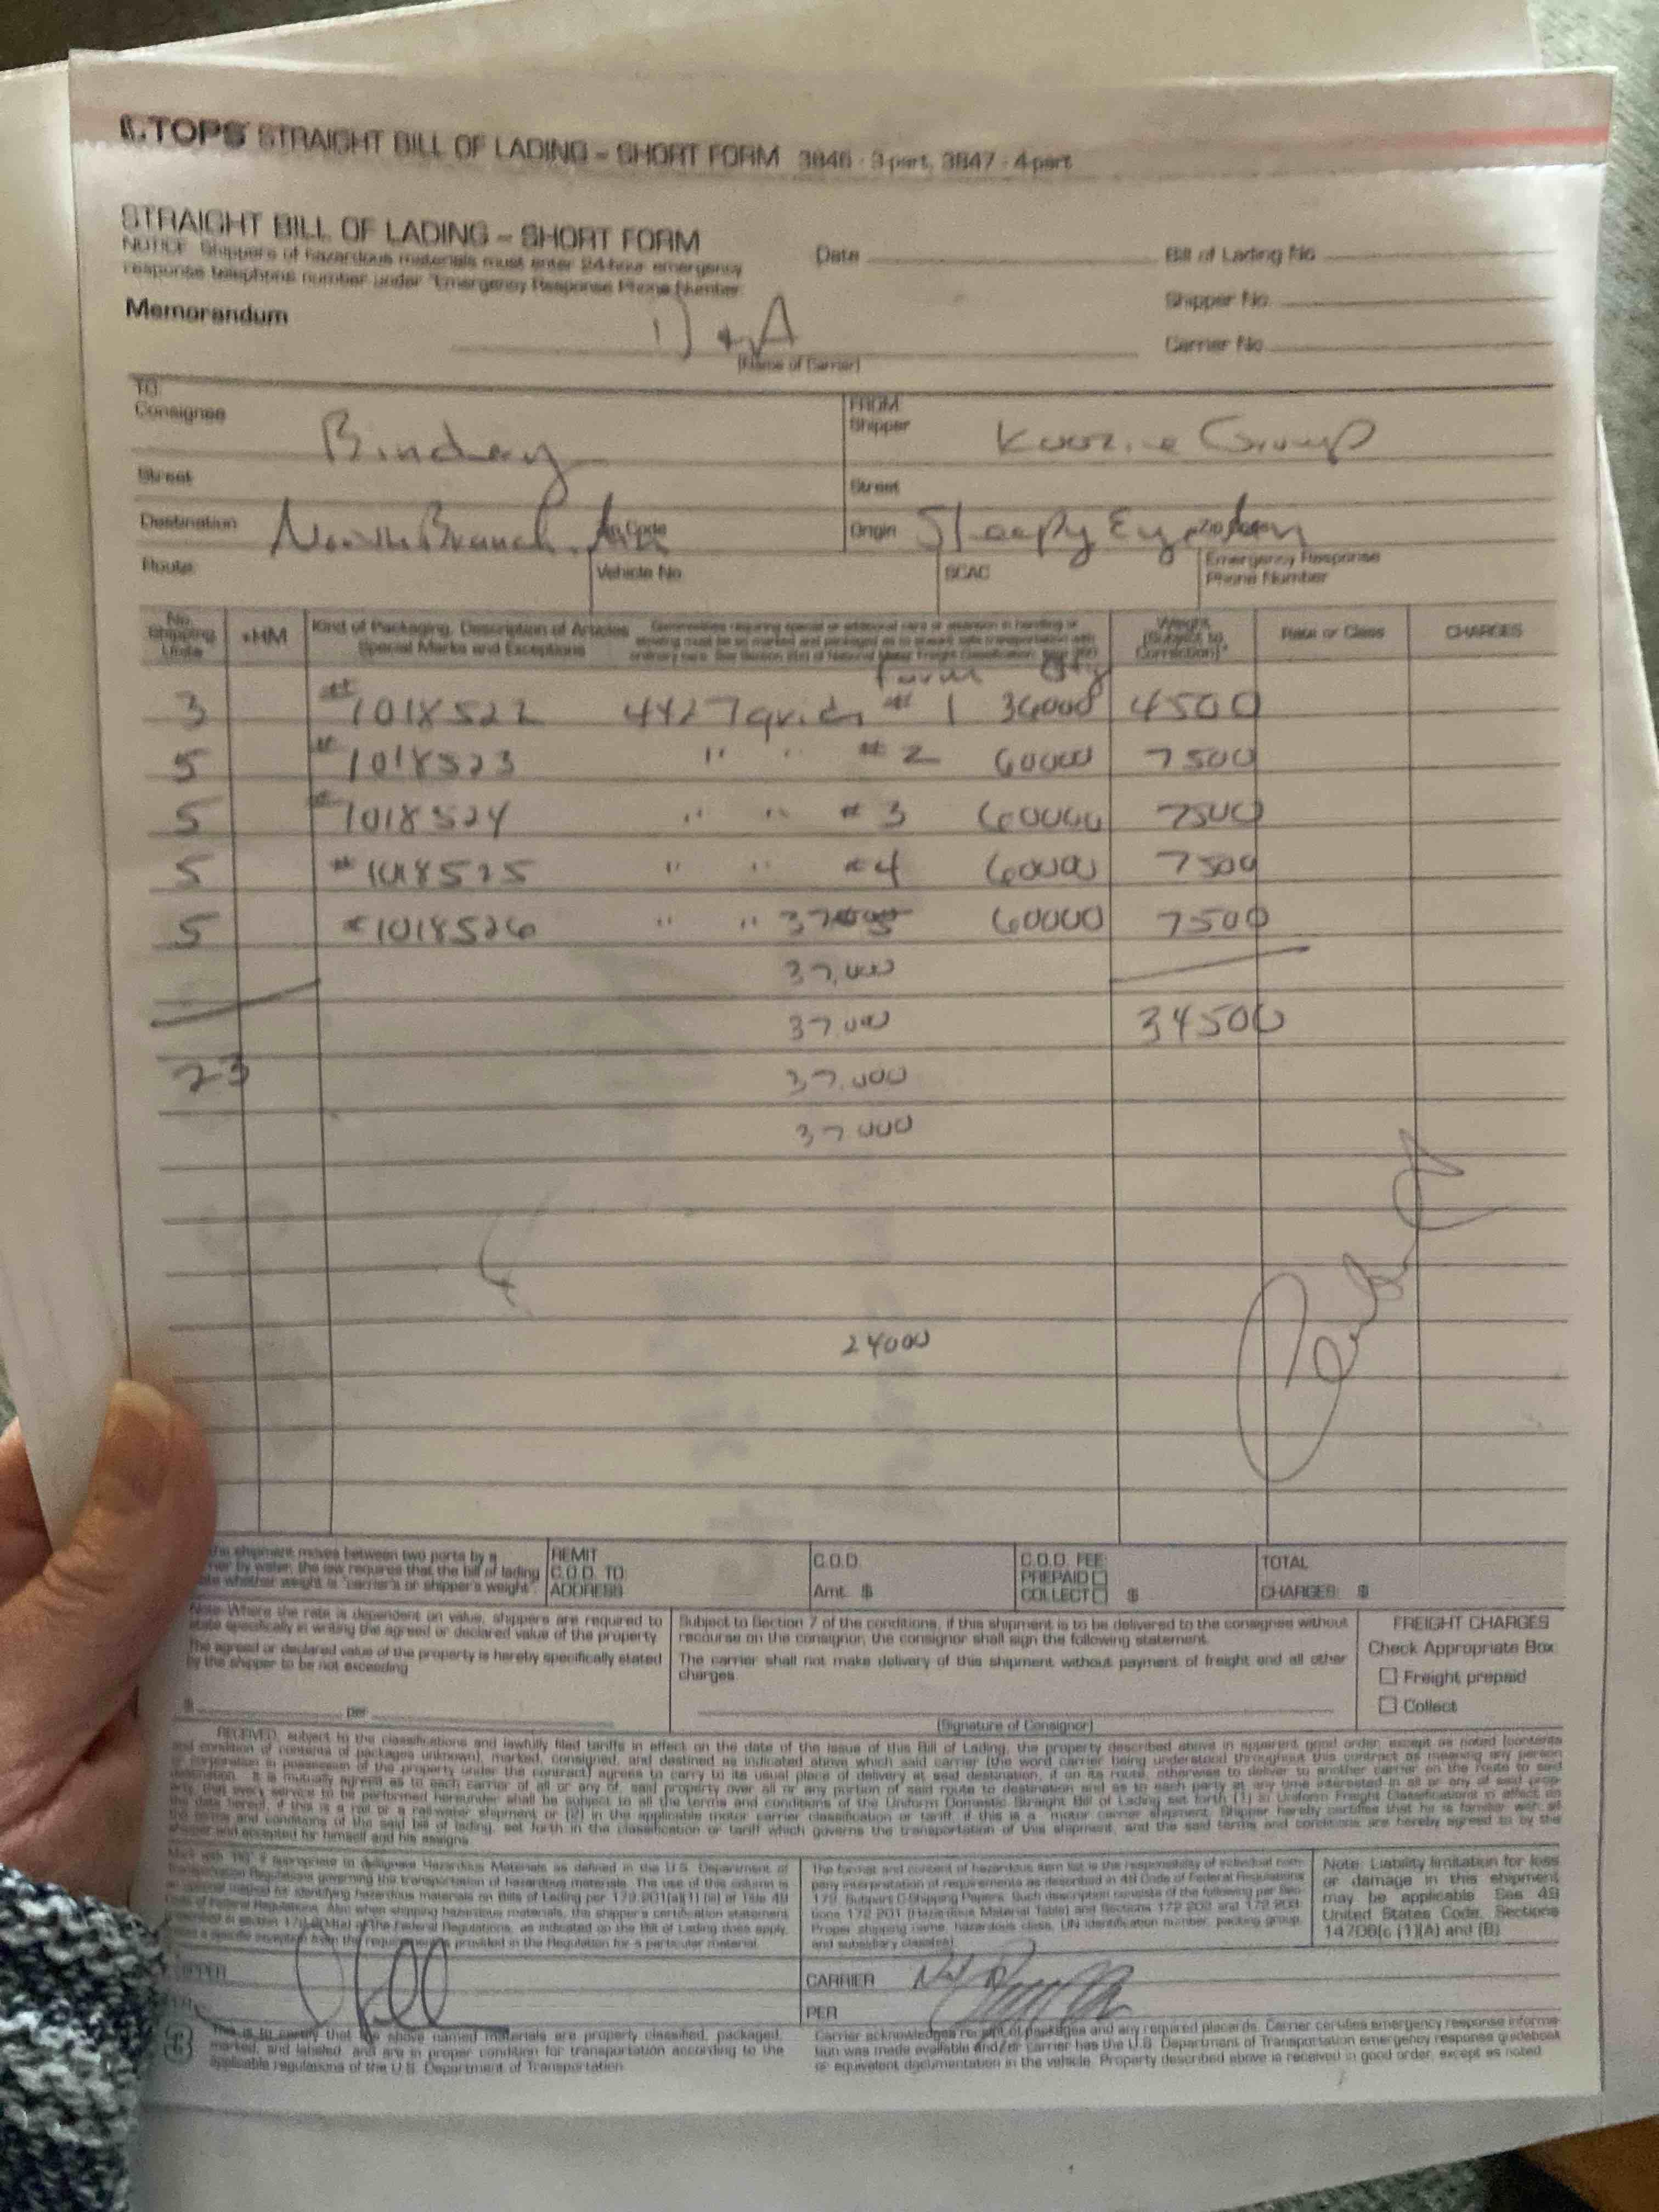 TOPS STRAIGHT BILL OF LADING – SHORT FORM 3846 - 3-part, 3847 - 4-part
STRAIGHT BILL OF LADING – SHORT FORM
NOTICE: Shippers of hazardous materials must enter 24-hour emergency
response telephone number under "Emergency Response Phone Number."
Date
Bill of Lading No.
Shipper No.
Memorandum
D + A
Carrier No.
(Name of Carrier)
TO:
Consignee
Bindery
FROM:
Shipper
Koozie Group
Street
Street
Destination
North Branch
Zip Code
Origin
Sleepy Eye
Zip Code
Route:
Vehicle No
SCAC
Emergency Response
Phone Number
No.
Shipping
Units
*HM
Kind of Packaging, Description of Articles
Special Marks and Exceptions
Weight
(Subject to
Correction)*
Rate or Class
CHARGES
Form Qty
3 #1018522 4427 grids #1 36000 4500
5 #1018523 " " #2 60000 7500
5 #1018524 " " #3 60000 7500
5 #1018525 " " #4 60000 7500
5 #1018526 " " 60000 7500
37,000
37,000 34500
23 37,000
37 000
24000
REMIT
C.O.D. TO:
ADDRESS
C.O.D.
Amt. $
C.O.D. FEE:
PREPAID
COLLECT $
TOTAL
CHARGES: $
the shipment moves between two ports by a
by water, the law requires that the bill of lading
whether weight is "carrier's or shipper's weight".
Note-Where the rate is dependent on value, shippers are required to
state specifically in writing the agreed or declared value of the property
The agreed or declared value of the property is hereby specifically stated
by the shipper to be not exceeding
$ per
Subject to Section 7 of the conditions, if this shipment is to be delivered to the consignee without
recourse on the consignor, the consignor shall sign the following statement.
The carrier shall not make delivery of this shipment without payment of freight and all other
charges.
(Signature of Consignor)
FREIGHT CHARGES
Check Appropriate Box:
Freight prepaid
Collect
RECEIVED, subject to the classifications and lawfully filed tariffs in effect on the date of the issue of this Bill of Lading, the property described above in apparent good order, except as noted (contents
and condition of contents of packages unknown), marked, consigned, and destined as indicated above which said carrier (the word carrier being understood throughout this contract as meaning any person
or corporation in possession of the property under the contract) agrees to carry to its usual place of delivery at said destination, if on its route, otherwise to deliver to another carrier on the route to said
destination. It is mutually agreed as to each carrier of all or any of, said property over all or any portion of said route to destination and as to each party at any time interested in all or any of said prop-
erty, that every service to be performed hereunder shall be subject to all the terms and conditions of the Uniform Domestic Straight Bill of Lading set forth (1) in Uniform Freight Classifications in effect on
the date hereof, if this is a rail or a rail-water shipment or (2) in the applicable motor carrier classification or tariff if this is a motor carrier shipment. Shipper hereby certifies that he is familiar with all
the terms and conditions of the said bill of lading, set forth in the classification or tariff which governs the transportation of this shipment, and the said terms and conditions are hereby agreed to by the
shipper and accepted for himself and his assigns.
Mark with "HQ" if appropriate to designate Hazardous Materials as defined in the U.S. Department of
Transportation Regulations governing the transportation of hazardous materials. The use of this column is
an optional method for identifying hazardous materials on Bills of Lading per 172.201(a)(1)(iii) of Title 49
Code of Federal Regulations. Also when shipping hazardous materials, the shipper's certification statement
of the Federal Regulations, as indicated on the Bill of Lading does apply,
a specific exception from the requirement is provided in the Regulation for a particular material.
The format and content of hazardous item list is the responsibility of individual com-
pany interpretation of requirements as described in 49 Code of Federal Regulations
172, Subpart C-Shipping Papers. Such description consists of the following per Sec-
tions 172.201 (Hazardous Material Table) and Sections 172.202 and 172.203:
Proper shipping name, hazardous class, UN identification number, packing group,
and subsidiary class(es).
Note: Liability limitation for loss
or damage in this shipment
may be applicable. See 49
United States Code, Sections
14706(c)(1)(A) and (B).
CARRIER
PER
This is to certify that the above named materials are properly classified, packaged,
marked, and labeled, and are in proper condition for transportation according to the
applicable regulations of the U.S. Department of Transportation.
Carrier acknowledges receipt of packages and any required placards. Carrier certifies emergency response informa-
tion was made available and/or carrier has the U.S. Department of Transportation emergency response guidebook
or equivalent documentation in the vehicle. Property described above is received in good order, except as noted.